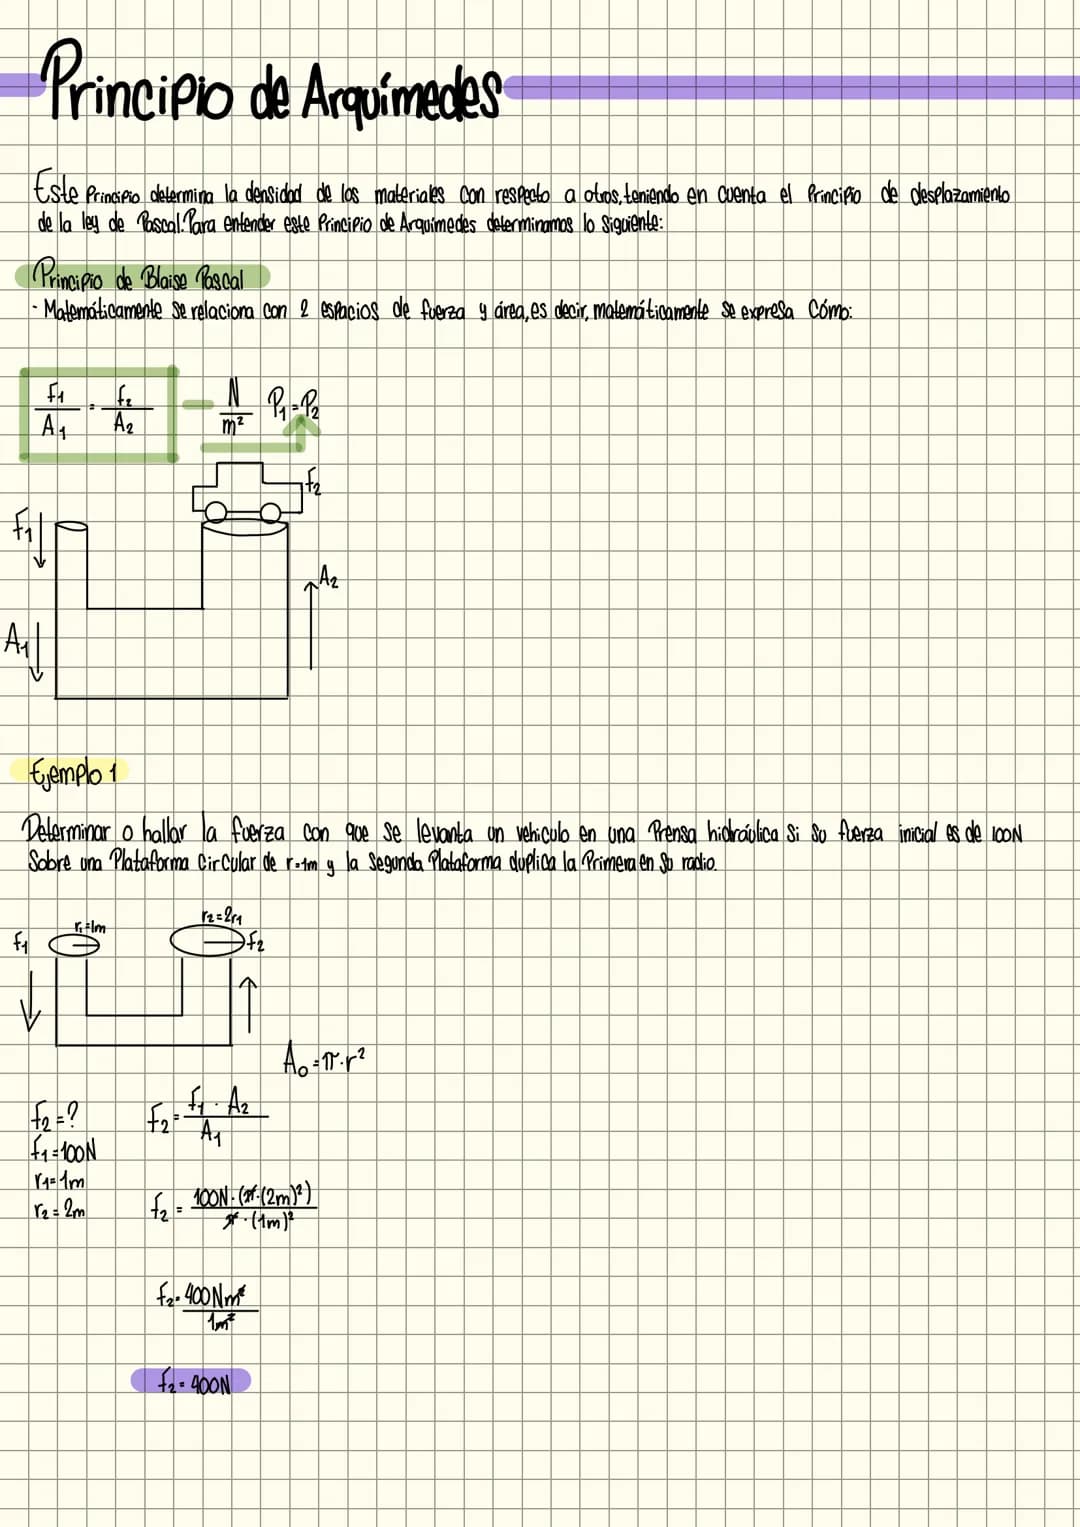 Principio de Arquímedes
Este Principio determina la densidad de los materiales con respecto a otros, teniendo en cuenta el Principio de desplazamiento
de la ley de Pascal. Para entender este Principio de Arquimedes determinamos lo Siguiente:
Principio de Blaise Pascal
- Matemáticamente se relaciona con 2 espacios de fuerza y área, es decir, matemáticamente se expresa Cómo:
f1/A1 = f2/A2 — N/m² P1=P2
f2
F1
A2
A1
Ejemplo 1
Determinar o hallar la fuerza con que se levanta un vehiculo en una Prensa hidráulica si su fuerza inicial es de 100N
Sobre una Plataforma Circular de r=1m y la Segunda Plataforma duplica la Primera en su radio.
r1=1m r2=2r1
f1 f2
Ao=π·r²
f2=? F2= f1·A2/A1
f1=100N
r1=1m
r2=2m f2 = 100N·(π·(2m)²)/π·(1m)²
f2= 400Nm²/1m²
f2= 400N